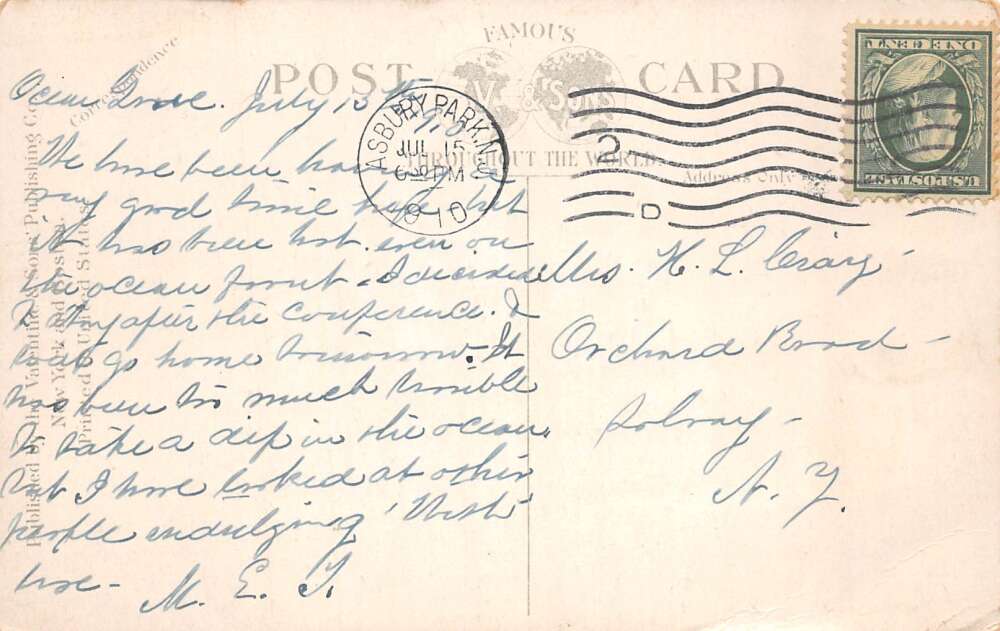 FAMOUS
POST CARD
V. & SONS
THROUGHOUT THE WORLD.
Correspondence
Address Only
ASBURY PARK, N.J.
JUL 15
6 PM
1910
2
D
U.S. POSTAGE
ONE CENT
Published by The Valentine & Sons' Publishing Co.
New York and Boston.
Printed in United States
Ocean Grove. July 15th 1910
We have been having a
very good time here but
it has been hot even on
the ocean front. I decided
to stay after the conference. &
will go home tomorrow. It
has been too much trouble
to take a dip in the ocean,
but I have looked at other
people indulging
M. E. F.
Mrs. H. L. Craig
Orchard Road
Solvay
N. Y.